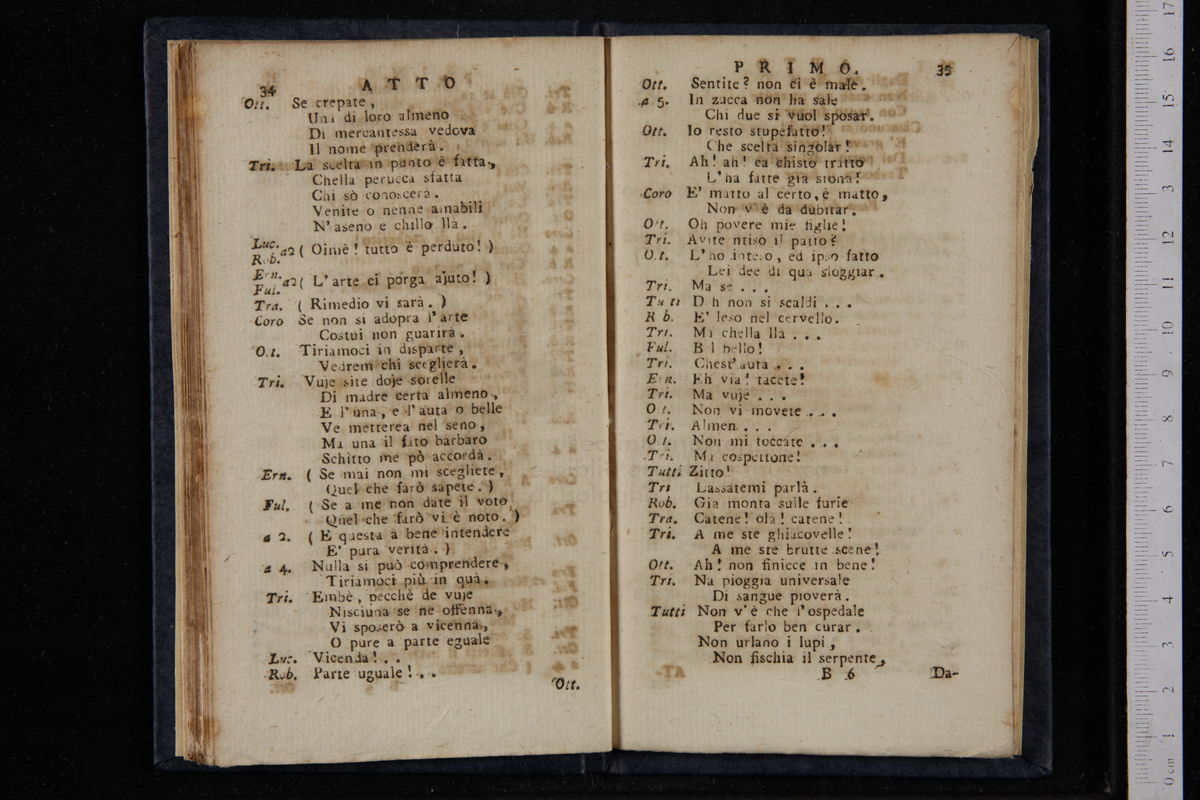 34
ATTO
Ott. Se crepate,
Una di loro almeno
Di mercantessa vedova
Il nome prenderà.
Tri. La scelta in punto è fatta,
Chella perucca sfatta
Chi sò conoscerà.
Venite o nenne amabili
N'aseno e chillo llà.
Luc. Rob. a2 ( Oimè! tutto è perduto! )
Ern. Ful. a2 ( L'arte ci porga ajuto! )
Tra. ( Rimedio vi sarà. )
Coro Se non si adopra l'arte
Costui non guarirà.
Ott. Tiriamoci in disparte,
Vedrem chi sceglierà.
Tri. Vuje site doje sorelle
Di madre certa almeno,
E l'una, e l'auta o belle
Ve metterea nel seno,
Ma una il fato barbaro
Schitto me pò accordà.
Ern. ( Se mai non mi scegliete,
Quel che farò sapete. )
Ful. ( Se a me non date il voto
Quel che farò vi è noto. )
a 2. ( E questa a bene intendere
E' pura verità. )
a 4. Nulla si può comprendere,
Tiriamoci più in quà.
Tri. Embè, pecchè de vuje
Nisciuna se ne offenna,
Vi sposerò a vicenna,
O pure a parte eguale
Luc. Vicenda! . .
Rob. Parte uguale! . .
Ott.
PRIMO.
35
Ott. Sentite? non ci è male.
a 5. In zucca non ha sale
Chi due si vuol sposar.
Ott. Io resto stupefatto!
Che scelta singolar!
Tri. Ah! ah! ca chisto tratto
L'ha fatte già stonà!
Coro E' matto al certo, è matto,
Non v'è da dubitar.
Ott. Oh povere mie figlie!
Tri. Avite ntiso il patto?
Ott. L'ho inteso, ed ipso fatto
Lei dee di quà sloggiar.
Tri. Ma se . . .
Tutti Deh non si scaldi . . .
Rob. E' leso nel cervello.
Tri. Ma chella llà . . .
Ful. Bel bello!
Tri. Chest'auta . . .
Ern. Eh via! tacete!
Tri. Ma vuje . . .
Ott. Non vi movete . . .
Tri. Almen . . .
Ott. Non mi toccate . . .
Tri. Ma cospettone!
Tutti Zitto!
Tri Lassatemi parlà.
Rob. Già monta sulle furie
Tra. Catene! olà! catene!
Tri. A me ste ghiacovelle!
A me ste brutte scene!
Ott. Ah! non finisce in bene!
Tri. Na pioggia universale
Di sangue pioverà.
Tutti Non v'è che l'ospedale
Per farlo ben curar.
Non urlano i lupi,
Non fischia il serpente,
B 6
Da-